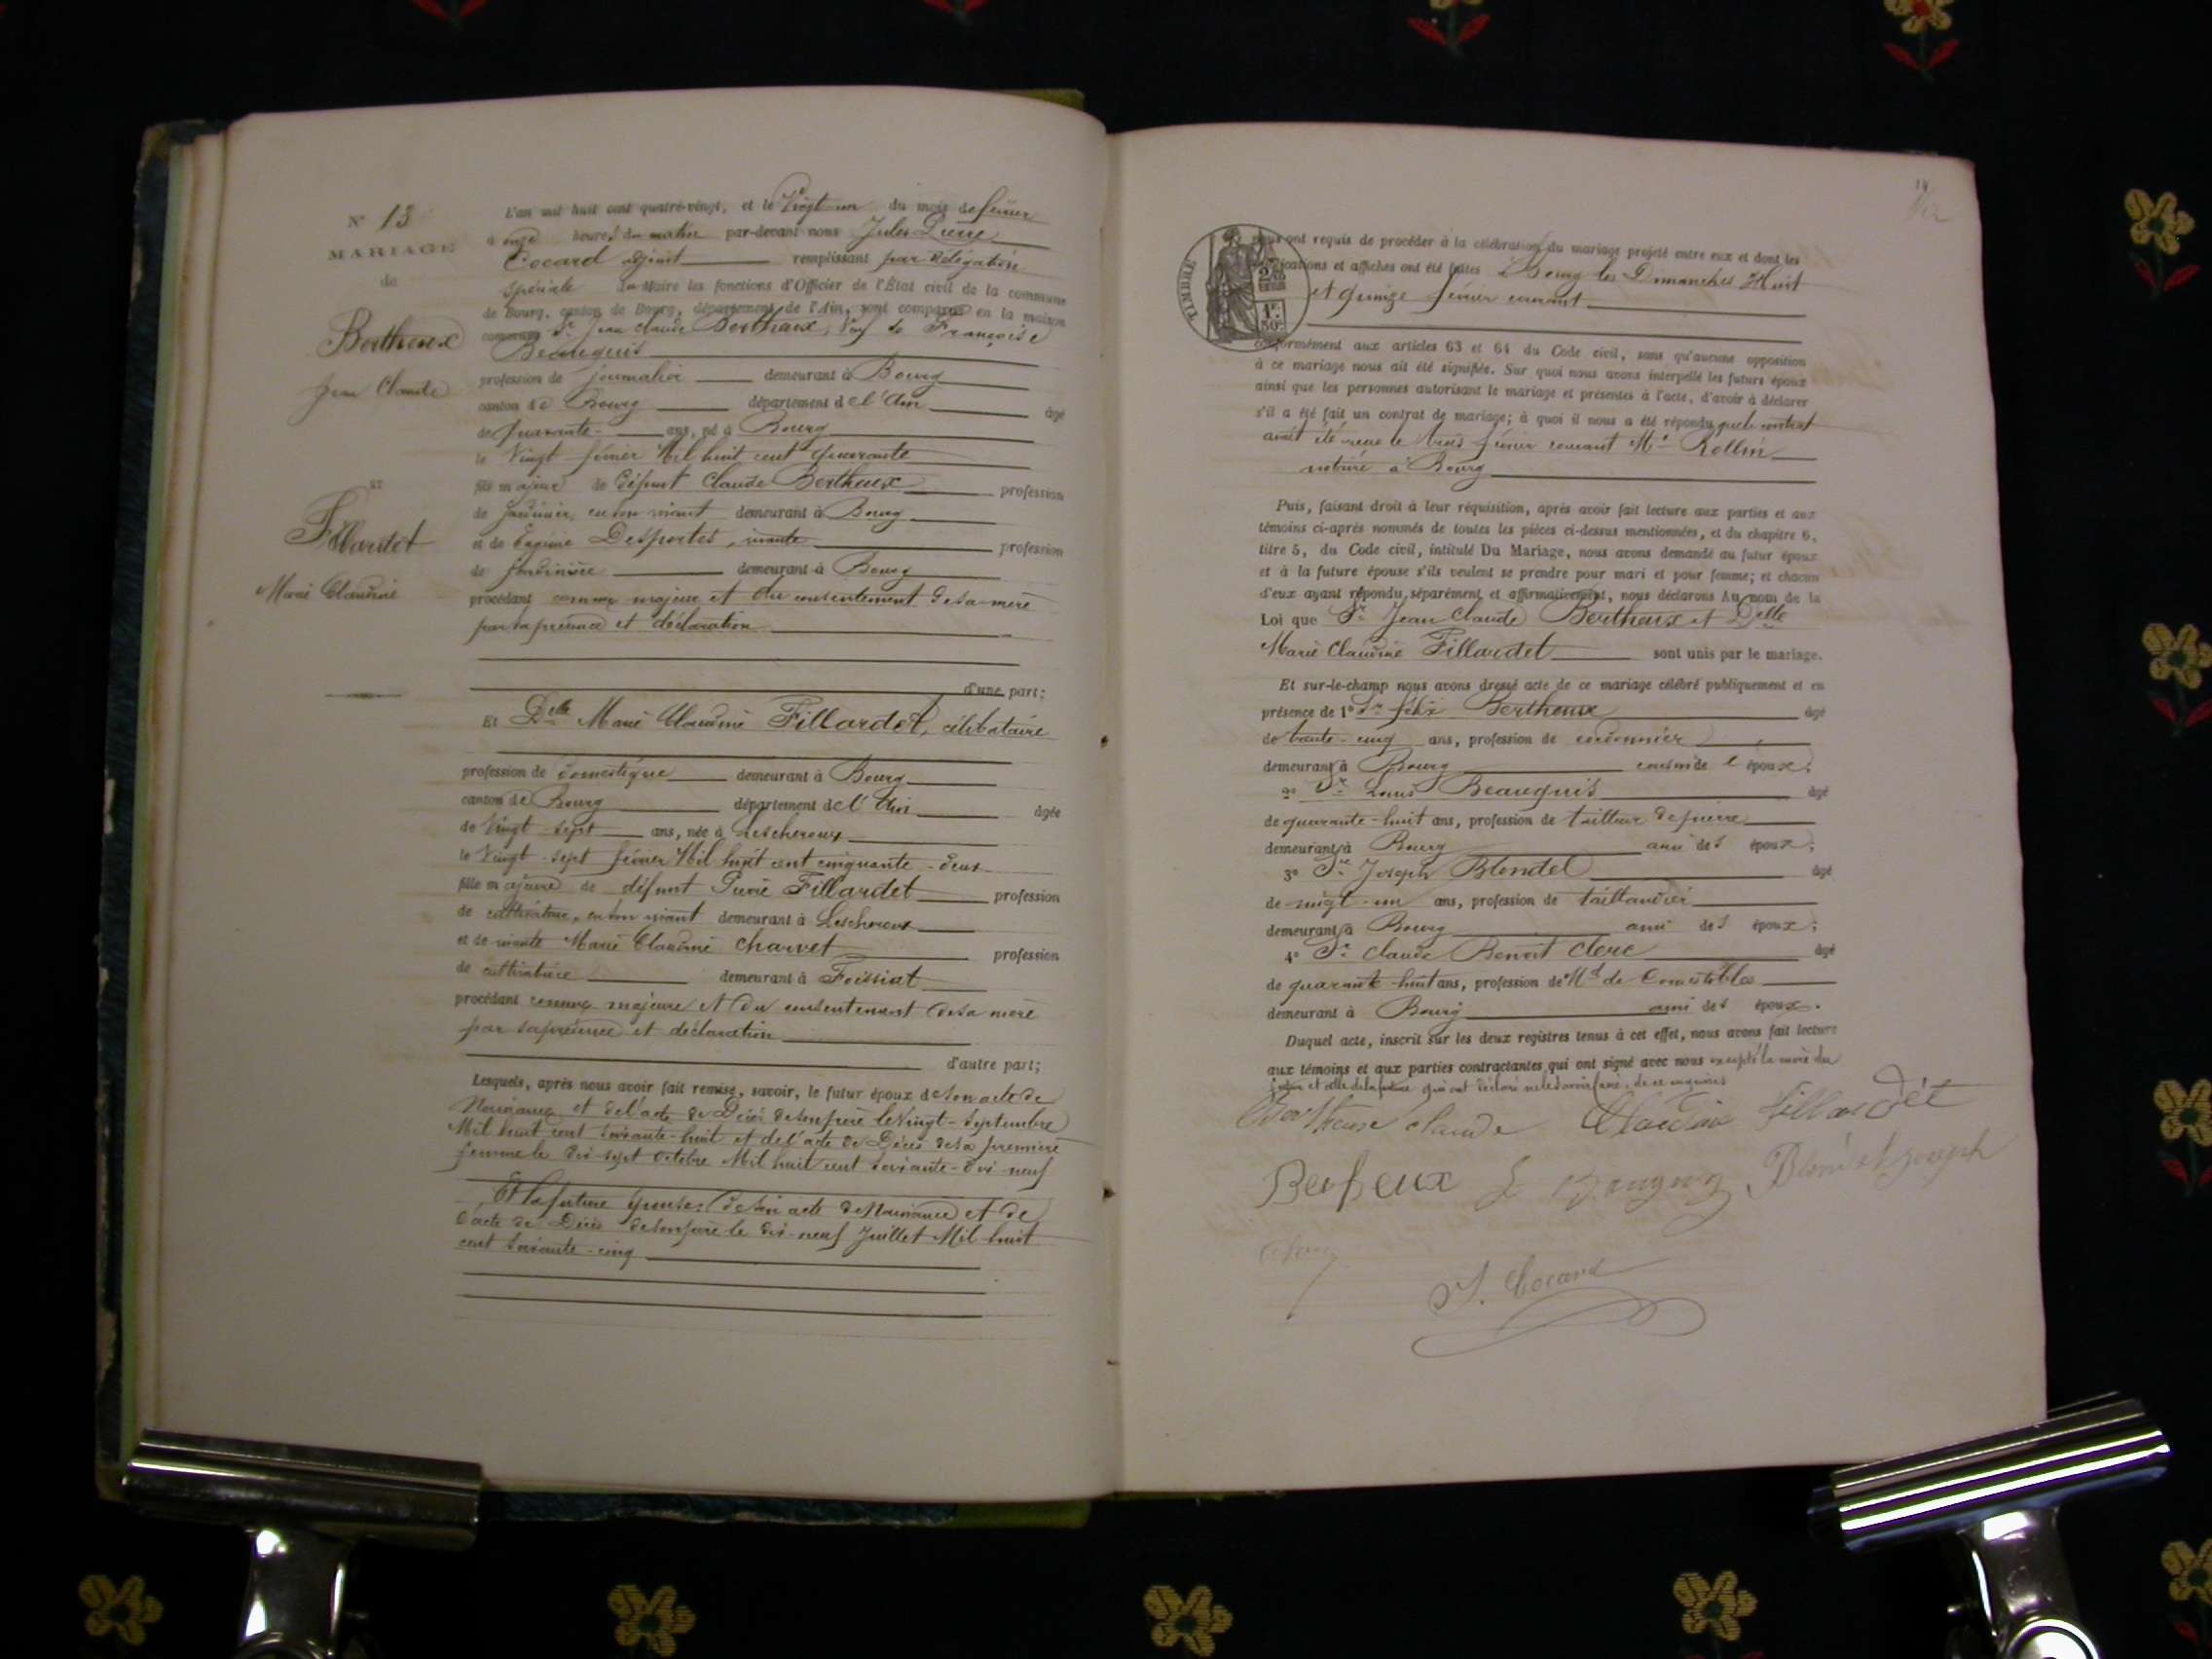 N° 13
MARIAGE
de
Bertheux
Jean Claude
et
Fillardet
Marie Claudine
L'an mil huit cent quatre-vingt, et le Vingt un du mois de février
à onze heures du matin par-devant nous Jules Pierre
Cocard adjoint remplissant par délégation
spéciale du Maire les fonctions d'Officier de l'État civil de la commune
de Bourg, canton de Bourg, département de l'Ain, sont comparus en la maison
commune Sr Jean Claude Bertheux, Veuf de Françoise
Beauguis
profession de journalier demeurant à Bourg
canton de Bourg département de l'Ain âgé
de quarante ans, né à Bourg
le Vingt février Mil huit cent quarante
fils majeur de défunt Claude Bertheux profession
de jardinier, en son vivant demeurant à Bourg
et de Eugénie Desportes, vivante profession
de jardinière demeurant à Bourg
procédant comme majeur et du consentement de sa mère
par sa présence et déclaration
d'une part;
Et Delle Marie Claudine Fillardet, célibataire
profession de domestique demeurant à Bourg
canton de Bourg département de l'Ain âgée
de Vingt-sept ans, née à Lescheroux
le Vingt-sept février Mil huit cent cinquante-deux
fille majeure de défunt Pierre Fillardet profession
de cultivateur, en son vivant demeurant à Lescheroux
et de vivante Marie Claudine Charvet profession
de cultivatrice demeurant à Foissiat
procédant comme majeure et du consentement de sa mère
par sa présence et déclaration
d'autre part;
Lesquels, après nous avoir fait remise, savoir, le futur époux de son acte de
Naissance et de l'acte de Décès de son père le Vingt-Septembre
Mil huit cent soixante-huit et de l'acte de Décès de sa première
femme le dix sept Octobre Mil huit cent soixante-dix-neuf
Et la future épouse: de son acte de Naissance et de
l'acte de Décès de son père le dix-neuf Juillet Mil huit
cent soixante-cinq
14
TIMBRE
nous ont requis de procéder à la célébration du mariage projeté entre eux et dont les
publications et affiches ont été faites à Bourg les Dimanches Huit
et quinze février courant
conformément aux articles 63 et 64 du Code civil, sans qu'aucune opposition
à ce mariage nous ait été signifiée. Sur quoi nous avons interpellé les futurs époux
ainsi que les personnes autorisant le mariage et présentes à l'acte, d'avoir à déclarer
s'il a été fait un contrat de mariage; à quoi il nous a été répondu que le contrat
avait été reçu le trois février courant Me Rollin
notaire à Bourg
Puis, faisant droit à leur réquisition, après avoir fait lecture aux parties et aux
témoins ci-après nommés de toutes les pièces ci-dessus mentionnées, et du chapitre 6,
titre 5, du Code civil, intitulé Du Mariage, nous avons demandé au futur époux
et à la future épouse s'ils veulent se prendre pour mari et pour femme; et chacun
d'eux ayant répondu, séparément et affirmativement, nous déclarons Au nom de la
Loi que Sr Jean Claude Bertheux et Delle
Marie Claudine Fillardet sont unis par le mariage.
Et sur-le-champ nous avons dressé acte de ce mariage célébré publiquement et en
présence de 1° Sr félix Bertheux âgé
de trente-cinq ans, profession de cordonnier
demeurant à Bourg cousin de l'époux;
2° Sr Louis Beauguis âgé
de quarante-huit ans, profession de tailleur de pierre
demeurant à Bourg ami des époux;
3° Sr Joseph Blondel âgé
de vingt-un ans, profession de taillandier
demeurant à Bourg ami des époux;
4° Sr Claude Benoit Clerc âgé
de quarante-huit ans, profession de Md de Comestibles
demeurant à Bourg ami des époux.
Duquel acte, inscrit sur les deux registres tenus à cet effet, nous avons fait lecture
aux témoins et aux parties contractantes qui ont signé avec nous excepté la mère du
futur et celle de la future qui ont déclaré ne le savoir faire, de ce enquises
Bertheux claude Claudine fillardet
Berheux L Blondel joseph
J. Cocard